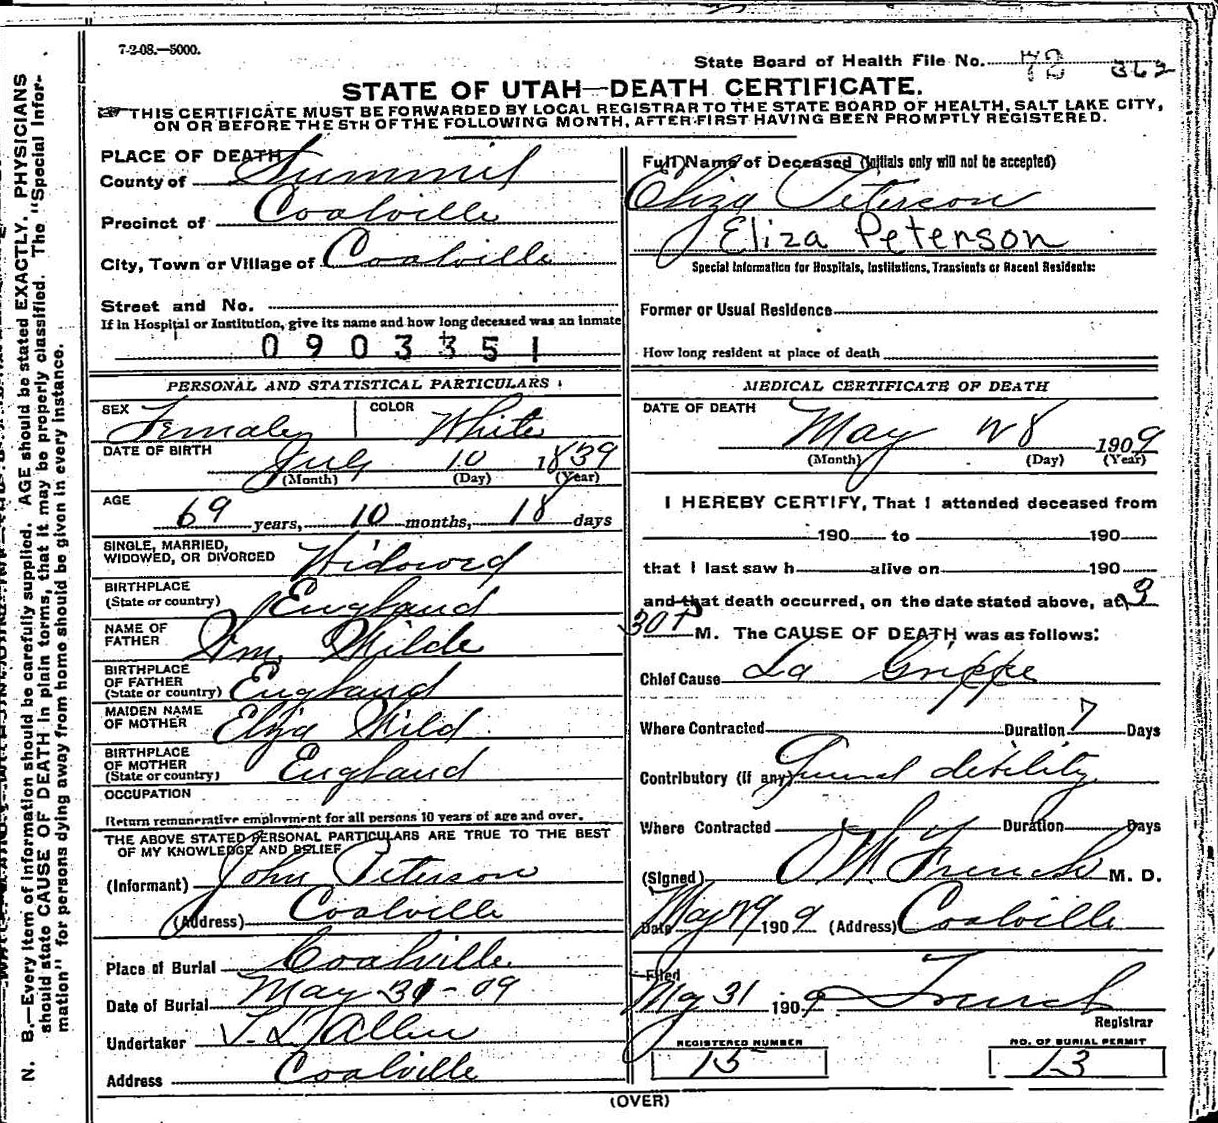 7-2-08.—5000.
State Board of Health File No. 78 362
STATE OF UTAH—DEATH CERTIFICATE.
THIS CERTIFICATE MUST BE FORWARDED BY LOCAL REGISTRAR TO THE STATE BOARD OF HEALTH, SALT LAKE CITY,
ON OR BEFORE THE 5TH OF THE FOLLOWING MONTH, AFTER FIRST HAVING BEEN PROMPTLY REGISTERED.
PLACE OF DEATH
County of Summit
Precinct of Coalville
City, Town or Village of Coalville
Street and No.
If in Hospital or Institution, give its name and how long deceased was an inmate
0 9 0 3 3 5 1
PERSONAL AND STATISTICAL PARTICULARS
SEX Female COLOR White
DATE OF BIRTH July 10 1839
(Month) (Day) (Year)
AGE 69 years, 10 months, 18 days
SINGLE, MARRIED,
WIDOWED, OR DIVORCED Widowed
BIRTHPLACE
(State or country) England
NAME OF
FATHER Wm. Wilde
BIRTHPLACE
OF FATHER
(State or country) England
MAIDEN NAME
OF MOTHER Eliza Wild
BIRTHPLACE
OF MOTHER
(State or country) England
OCCUPATION
Return remunerative employment for all persons 10 years of age and over.
THE ABOVE STATED PERSONAL PARTICULARS ARE TRUE TO THE BEST
OF MY KNOWLEDGE AND BELIEF
(Informant) John Peterson
(Address) Coalville
Place of Burial Coalville
Date of Burial May 31-09
Undertaker Allen
Address Coalville
Full Name of Deceased (Initials only will not be accepted)
Eliza Peterson
Eliza Peterson
Special Information for Hospitals, Institutions, Transients or Recent Residents:
Former or Usual Residence
How long resident at place of death
MEDICAL CERTIFICATE OF DEATH
DATE OF DEATH May 28 1909
(Month) (Day) (Year)
I HEREBY CERTIFY, That I attended deceased from
190 to 190
that I last saw h alive on 190
and that death occurred, on the date stated above, at 3
30 P M. The CAUSE OF DEATH was as follows:
Chief Cause La Grippe
Where Contracted Duration 7 Days
Contributory (if any) General debility
Where Contracted Duration Days
(Signed) French M. D.
Date May 29 1909 (Address) Coalville
Filed
My 31 1909 French
Registrar
REGISTERED NUMBER
15
NO. OF BURIAL PERMIT
13
(OVER)
N. B.—Every item of information should be carefully supplied. AGE should be stated EXACTLY. PHYSICIANS
should state CAUSE OF DEATH in plain terms, that it may be properly classified. The "Special Infor-
mation" for persons dying away from home should be given in every instance.